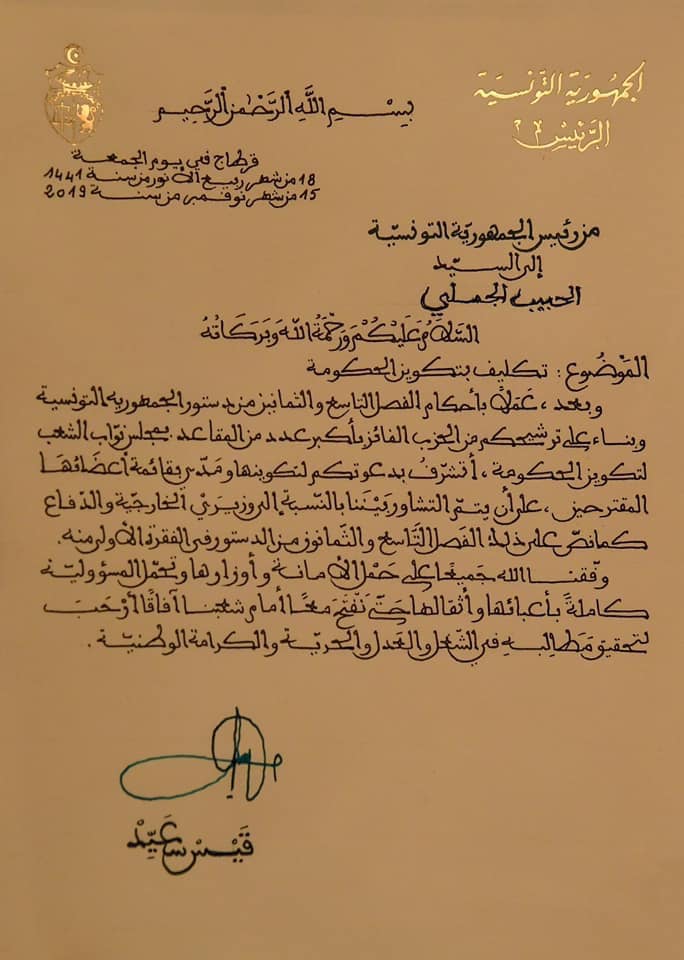 الجمهورية التونسية
الرئيس
بِسْمِ اللَّهِ الرَّحْمٰنِ الرَّحِيمِ
قرطاج في يوم الجمعة
18 من شهر ربيع الأنور من سنة 1441
15 من شهر نوفمبر من سنة 2019
من رئيس الجمهورية التونسية
إلى السيّد
الحبيب الجملي
السَّلَامُ عَلَيْكُمْ وَرَحْمَةُ اللَّهِ وَبَرَكَاتُهُ
المَوْضُوع : تكليف بتكوين الحكومة
وبعد، عَمَلًا بأحكام الفصل التاسع والثمانين من دستور الجمهورية التونسية
وبناء على ترشيحكم من الحزب الفائز بأكبر عدد من المقاعد بمجلس نوّاب الشعب
لتكوين الحكومة، أتشرّف بدعوتكم لتكوينها ومَدّي بقائمة أعضائها
المقترحين، على أن يتمّ التشاور بيننا بالنّسبة إلى وزيرَيْ الخارجيّة والدّفاع
كما نصّ على ذلك الفصل التّاسع والثّمانون من الدستور في الفقرة الأولى منه.
وفّقنا الله جميعًا على حَمْل الأمانة وأوزارها وتحمّل المسؤوليّة
كاملةً بأعبائها وأثقالها حتّى نَفْتَحَ معًا أمام شعبنا آفاقًا أَرْحَبَ
لتحقيق مَطَالِبِهِ في الشّغل والعَدل والحريّة والكرامة الوطنيّة.
قَيْس سَعَيِّدْ